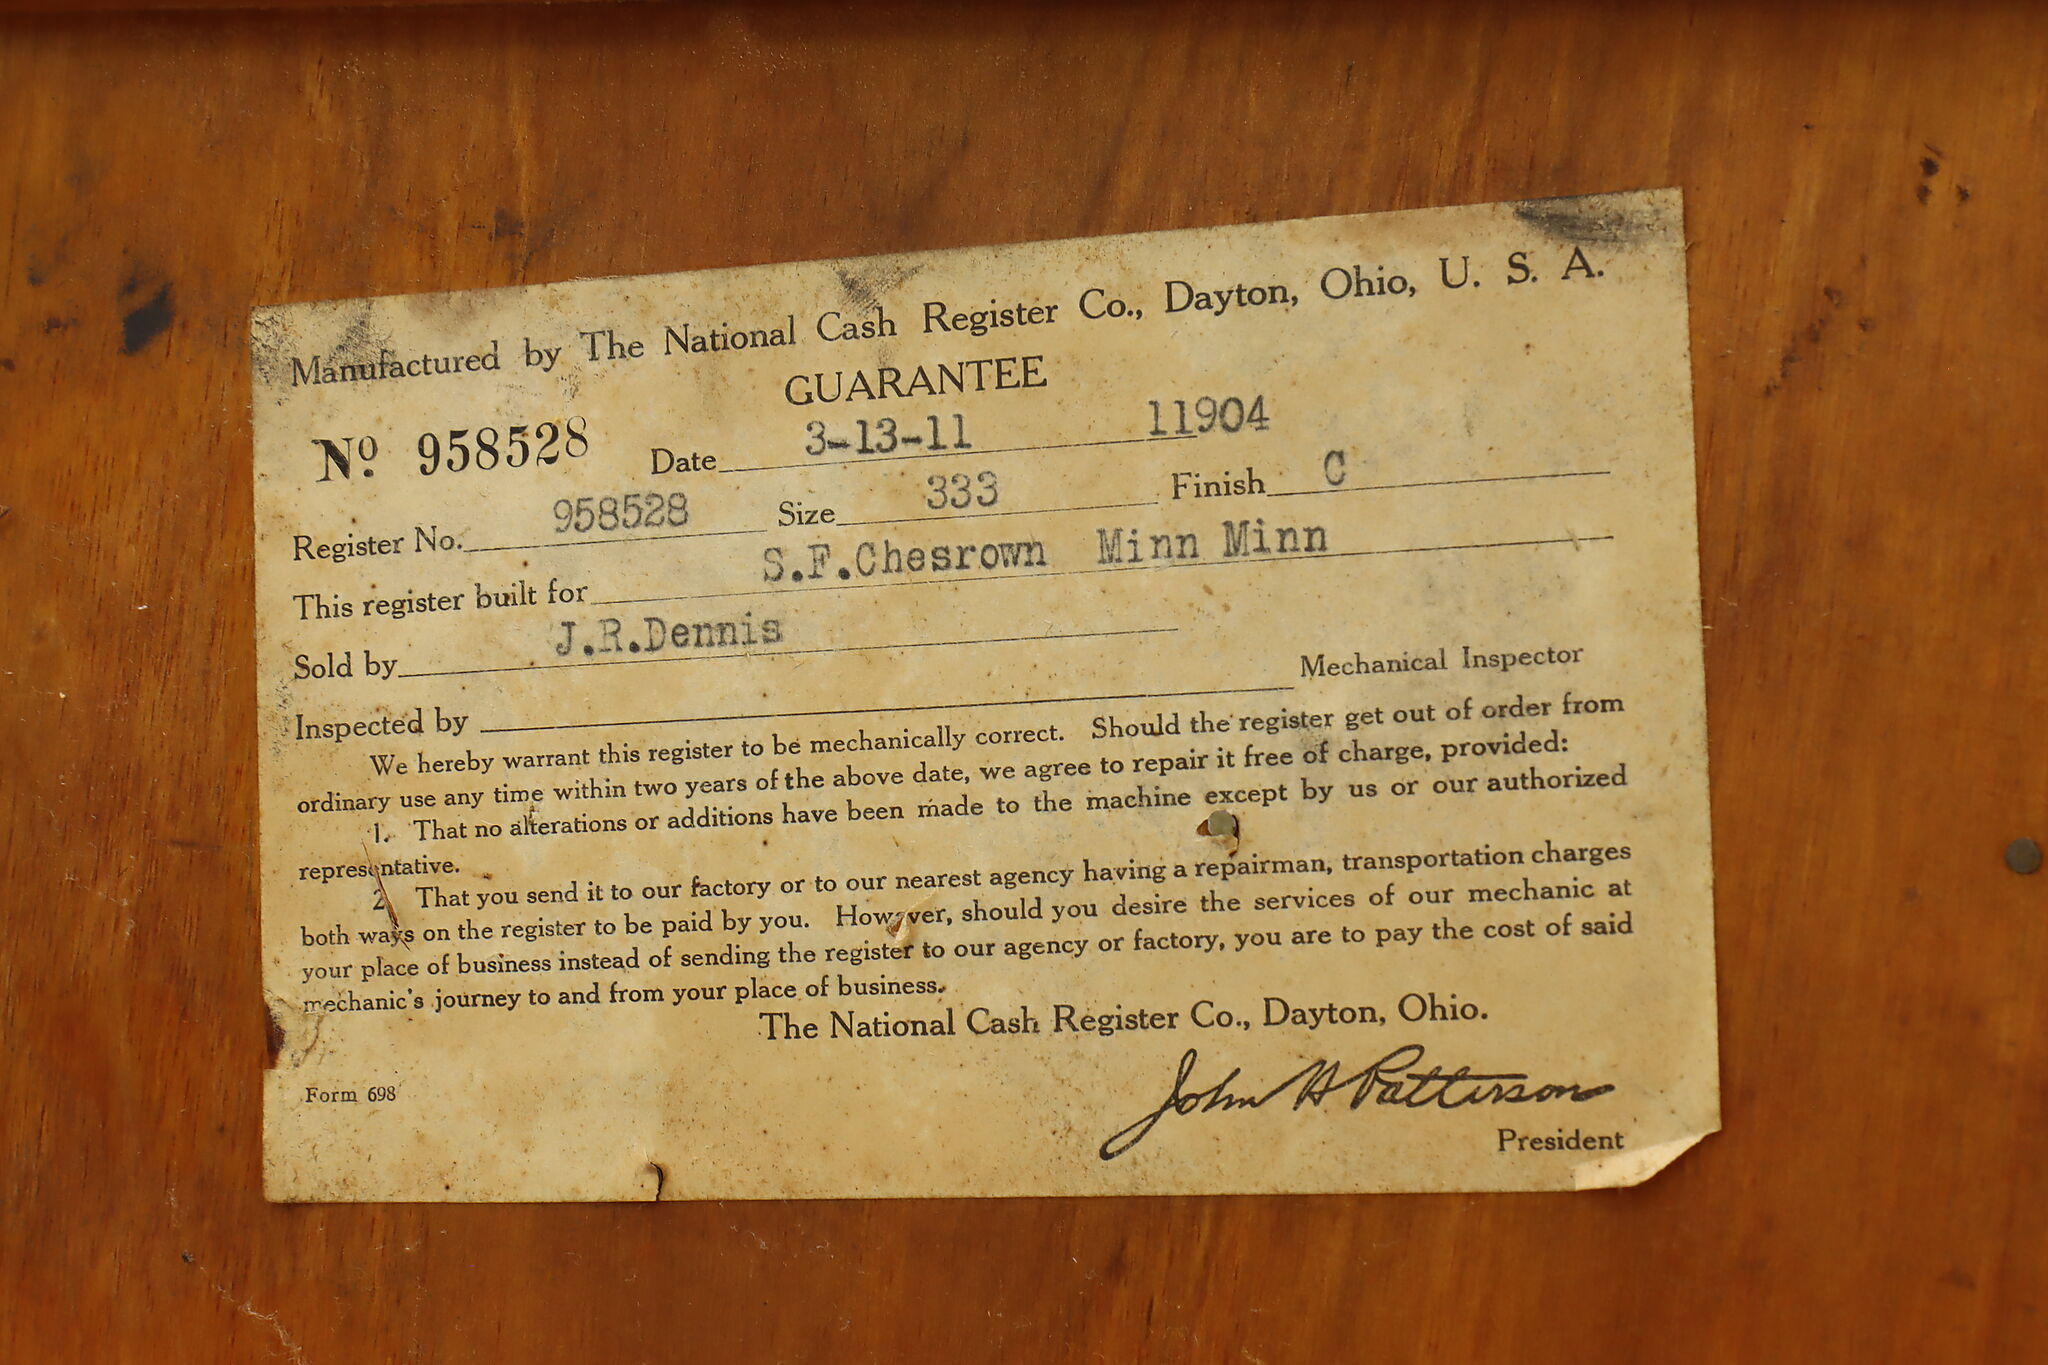 Manufactured by The National Cash Register Co., Dayton, Ohio, U. S. A.
GUARANTEE
No. 958528 Date 3-13-11 11904
Register No. 958528 Size 333 Finish C
This register built for S.F.Chesrown Minn Minn
Sold by J.R.Dennis
Inspected by Mechanical Inspector
We hereby warrant this register to be mechanically correct. Should the register get out of order from
ordinary use any time within two years of the above date, we agree to repair it free of charge, provided:
1. That no alterations or additions have been made to the machine except by us or our authorized
representative.
2 That you send it to our factory or to our nearest agency having a repairman, transportation charges
both ways on the register to be paid by you. However, should you desire the services of our mechanic at
your place of business instead of sending the register to our agency or factory, you are to pay the cost of said
mechanic's journey to and from your place of business.
The National Cash Register Co., Dayton, Ohio.
John H Patterson
Form 698
President